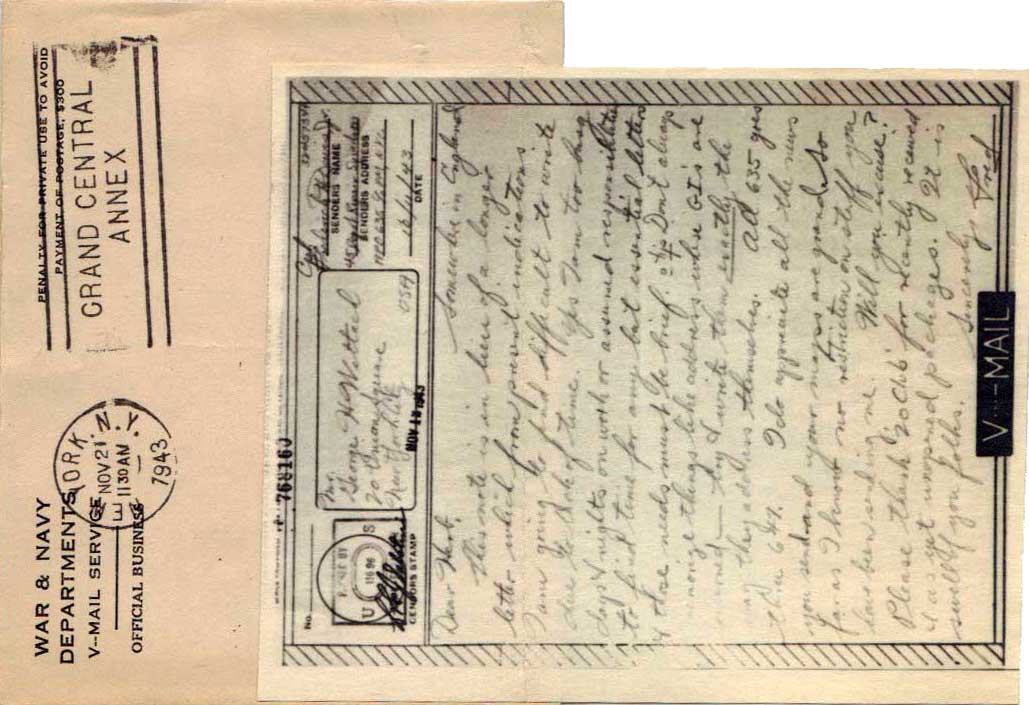 WAR & NAVY
DEPARTMENTS
V--MAIL SERVICE
OFFICIAL BUSINESS
YORK, N.Y.
NOV 21
11 30 AM
1943
PENALTY FOR PRIVATE USE TO AVOID
PAYMENT OF POSTAGE, $300
GRAND CENTRAL
ANNEX
No.
768160
U S
CENSORS STAMP
Mr.
George H Wittack
20 Square
New York
USA
NOV 19 1943
Cpl
SENDERS NAME
SENDERS ADDRESS
APO 635
DATE
Somewhere in England
Dear Herb,
This note is in lieu of a longer
letter which from present indications
I am going to find difficult to write
due to lack of time. Yes I am too busy
days & nights on work or assumed responsibilities
to find time for any but essential letters
& those needs must be brief. Don't always
manage things like address when GI's are
moved — try & write them exactly the
way they address themselves. All 635 goes
thru 647. I do appreciate all the news
you send and your maps are grand. So
far as I know no restriction on stuff you
have been sending me. Will you excuse?
Please thank 20 Club for recently received
& as yet unopened packages. It is
swell of you folks.
Sincerely,
Fred
V···-MAIL